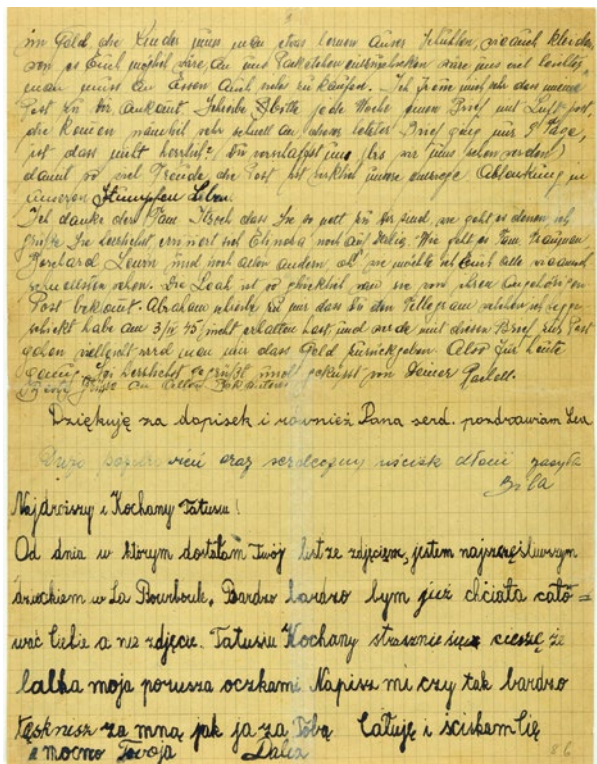 3
im Geld, die Kinder muss man etwas lernen Schuhlen, wie auch kleiden,
wen es Euch möglich wäre, an uns Packetchen einzuschicken wäre uns viel leichter
man muss an Essen auch vieles zu kaufen. Ich freue mich sehr dass meine
Post zu Dir ankomt. Schreibe Bitte jede Woche einen Brief mit Luftpost,
die komen nämlich sehr schnell an dieser letzter Brief ging nur 9 Tage,
ist dass nicht herrlich? Du verschaffst uns
damit so viel Freude, die Post ist wirklich unsere einzige Ablenkung in
unseren Stumpfen Leben.
Ich danke der Fam. dass Sie so nett zu Dir sind, wie geht es denen, ich
grüsse Sie herzlichst, erinnert sich noch auf Wie geht es Fam.
und noch allen andern alle
sehen. Die Leah ist so glücklich wen sie von ihren Angehörigen
Post bekomt. Abraham schreibt zu mir dass Du den Tellegram welchen ich
schickt habe am 3/IV 45 nicht erhalten hast und werde mit diesen Brief zur Post
gehen vielleicht wird man mir dass Geld zurückgeben. Also für heute
genug. Sei herzlichst gegrüsst und geküsst von Deiner Rachell.
Grüsse an Allen Bekanten
Dziękuję za dopisek i również Pana serd. pozdrawiam Lea
Dużo oraz serdeczny uścisk dłoni zasyła
Najdroższy i Kochany Tatusiu!
Od dnia w którym dostałam Twój list ze zdjęciem, jestem najszczęśliwszym
dzieckiem w La Bourboule. Bardzo bardzo bym już chciała cało=
wać Ciebie a nie zdjęcie. Tatusiu Kochany strasznie się cieszę że
lalka moja porusza oczkami. Napisz mi czy tak bardzo
tęsknisz za mną jak ja za Tobą Całuję i ściskam Cię
mocno Twoja
86